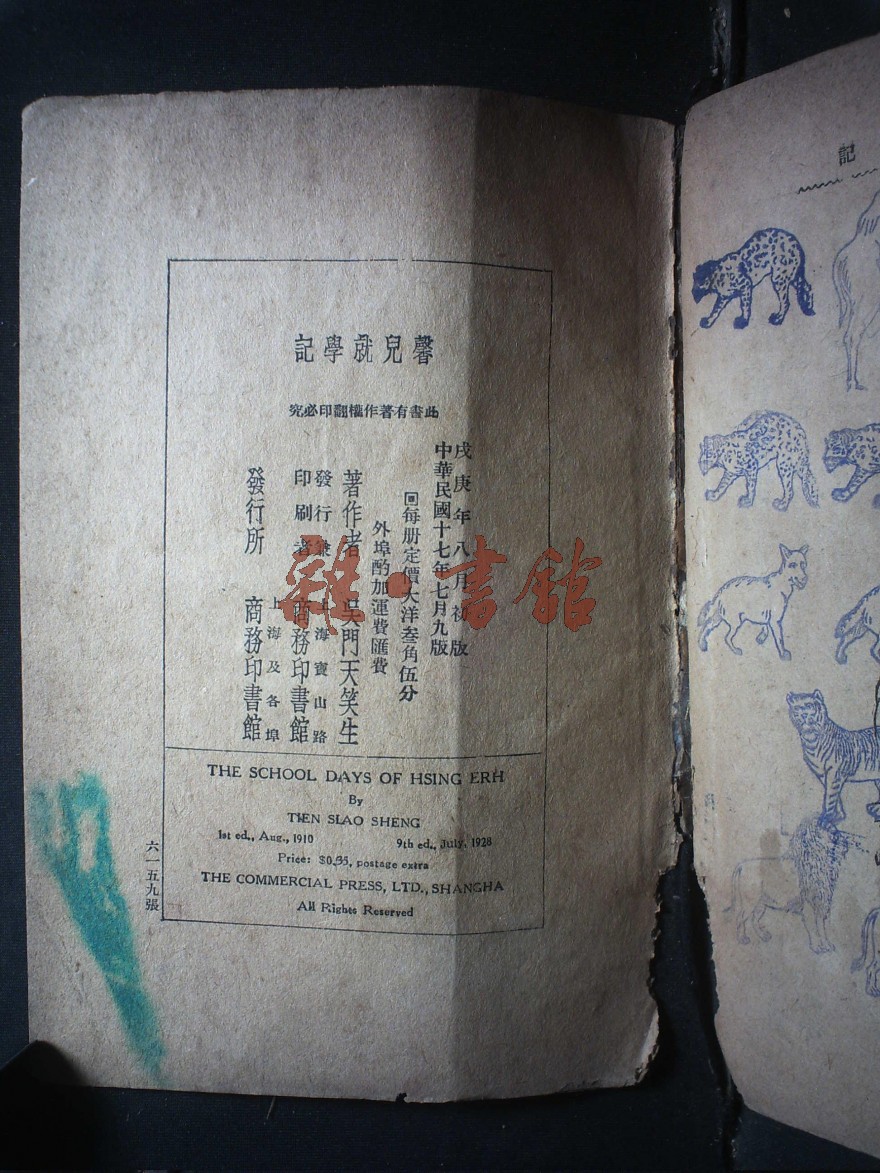 馨兒就學記
此書有著作權翻印必究
戌庚年八月初版
中華民國十七年七月九版
回每册定價大洋叁角伍分
外埠酌加運費匯費
著作者 吳門天笑生
發行兼 上海寶山路
印刷者 商務印書館
上海及各埠
發行所 商務印書館
THE SCHOOL DAYS OF HSING ERH
By
TIEN SIAO SHENG
1st ed., Aug., 1910 9th ed., July, 1928
Price: $0.35, postage extra
THE COMMERCIAL PRESS, LTD., SHANGHA
All Rights Reserved
六一五九張
記
雜·書館